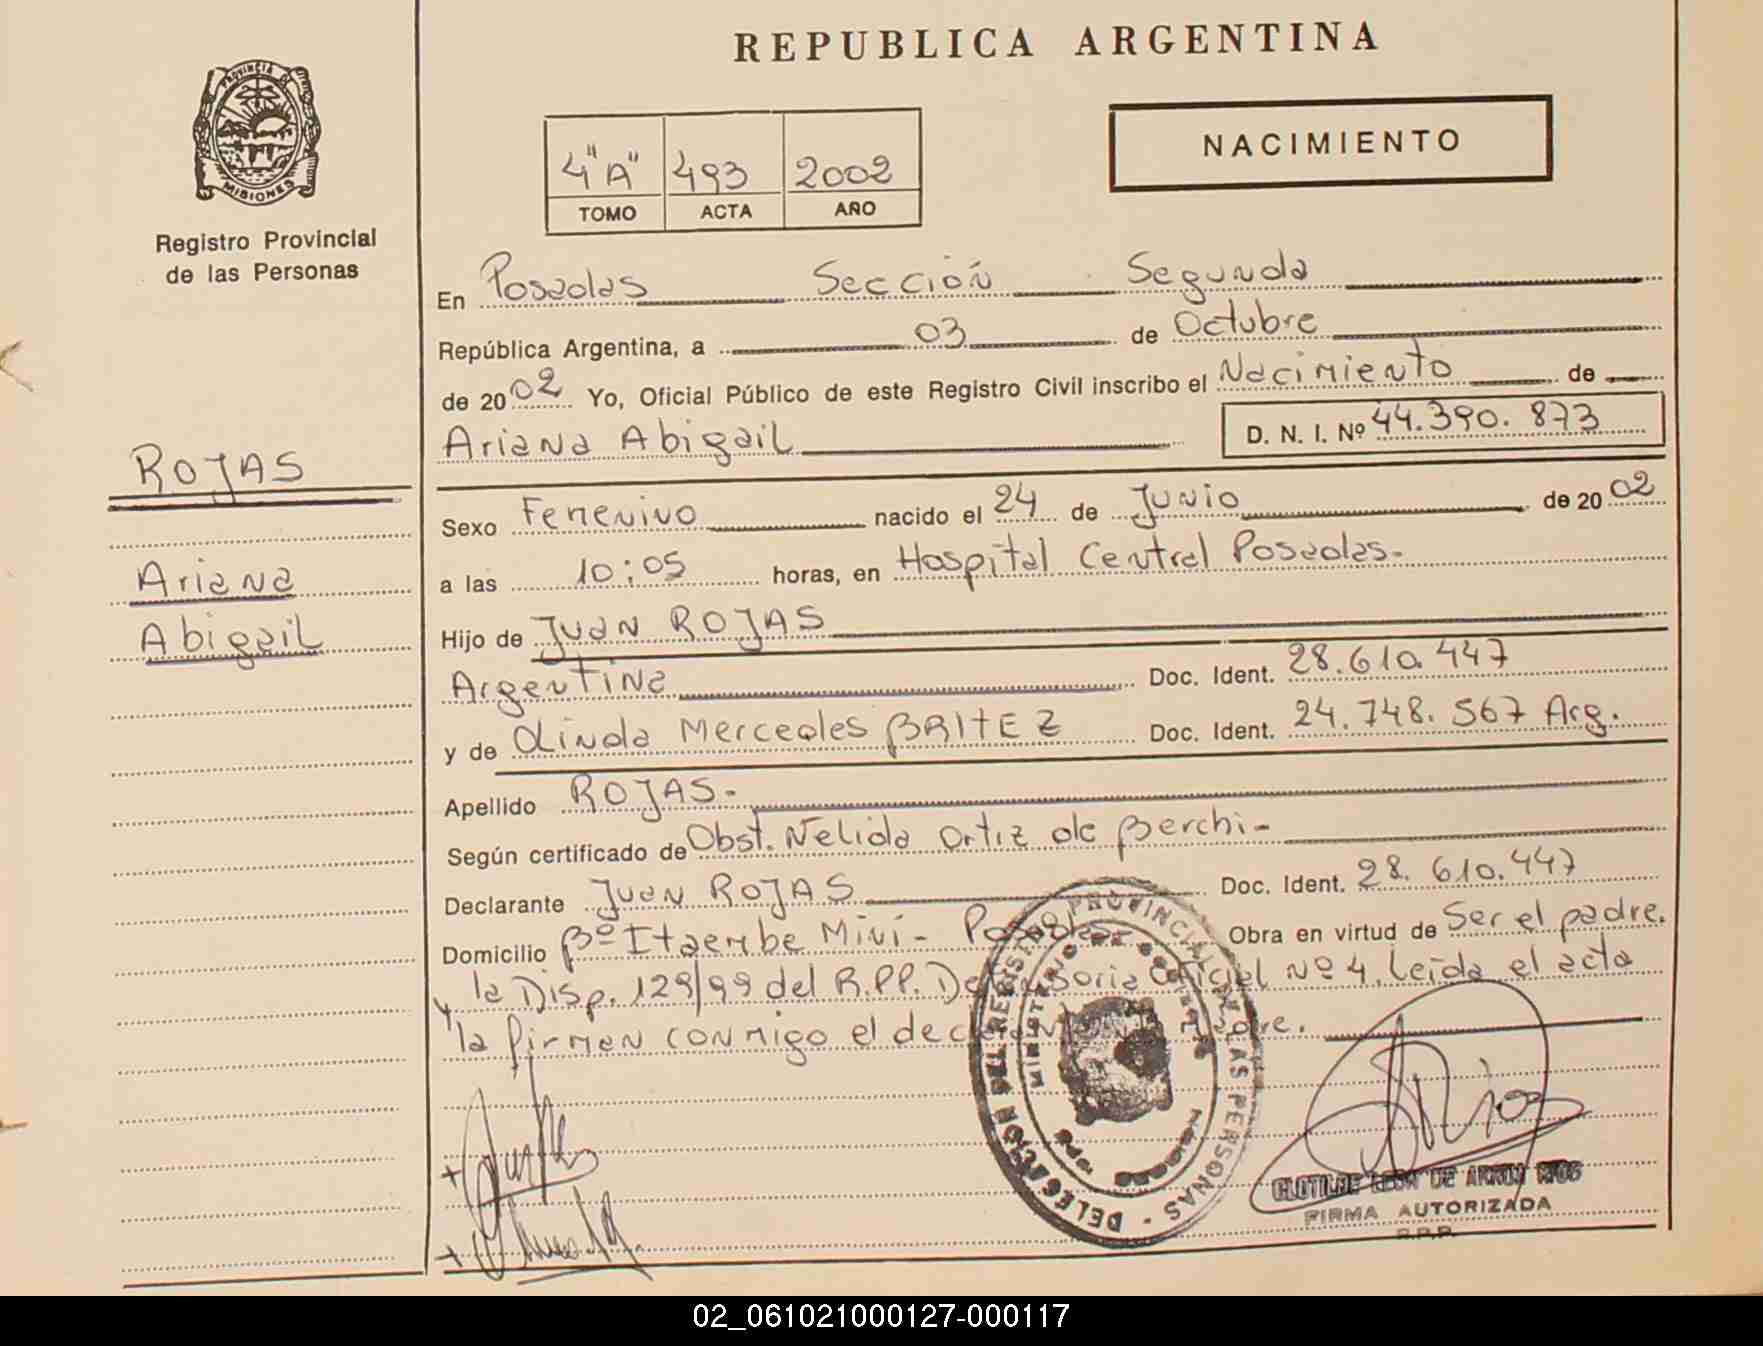 REPUBLICA ARGENTINA
PROVINCIA DE
MISIONES
Registro Provincial
de las Personas
4"A" 493 2002
TOMO ACTA AÑO
NACIMIENTO
ROJAS
Ariana
Abigail
En Posadas Sección Segunda
República Argentina, a 03 de Octubre
de 2002 Yo, Oficial Público de este Registro Civil inscribo el Nacimiento de
Ariana Abigail D. N. I. Nº 44.390.873
Sexo Femenino nacido el 24 de Junio de 2002
a las 10:05 horas, en Hospital Central Posadas.
Hijo de Juan ROJAS
Argentina Doc. Ident. 28.610.447
y de Olinda Mercedes BRITEZ Doc. Ident. 24.748.567 Arg.
Apellido ROJAS.
Según certificado de Obst. Nelida Ortiz de Berchi-
Declarante Juan ROJAS Doc. Ident. 28.610.447
Domicilio Bº Itaembe Mini - Posadas Obra en virtud de Ser el padre.
y la Disp. 129/99 del R.P.P. Defensoria Oficial Nº 4. Leida el acta
la firman conmigo el declarante madre.
DELEGACION DEL REGISTRO PROVINCIAL DE LAS PERSONAS
MINISTERIO DE
CLOTILDE LEON DE ARRUA RIOS
FIRMA AUTORIZADA
R.P.P.
02_061021000127-000117